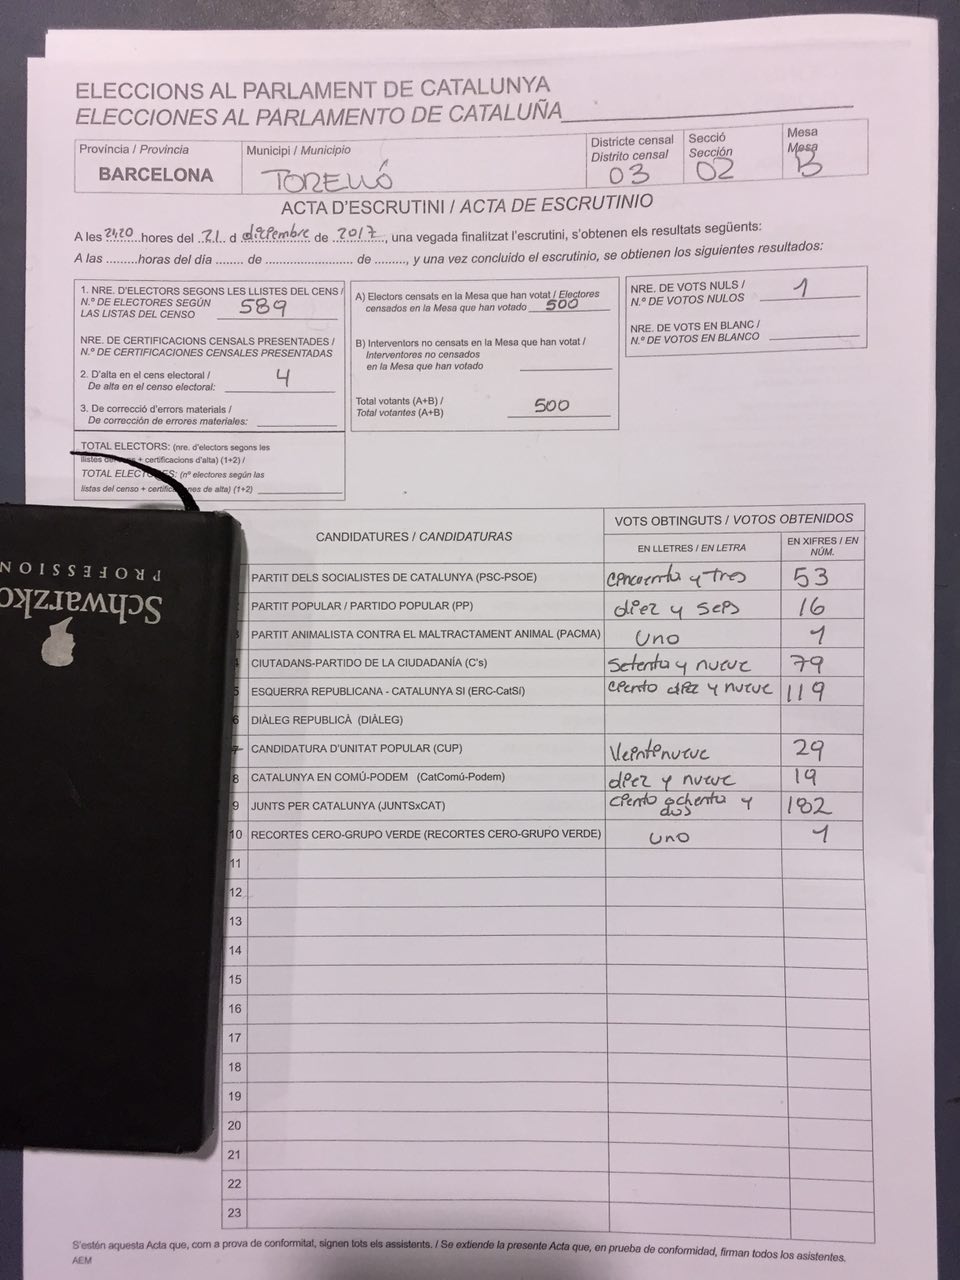 ELECCIONS AL PARLAMENT DE CATALUNYA
ELECCIONES AL PARLAMENTO DE CATALUÑA
Província / Provincia
BARCELONA
Municipi / Municipio
TORELLÓ
Districte censal
Distrito censal
03
Secció
Sección
02
Mesa
Mesa
B
ACTA D'ESCRUTINI / ACTA DE ESCRUTINIO
A les 2120 hores del 21 d diciembre de 2017, una vegada finalitzat l'escrutini, s'obtenen els resultats següents:
A las .........horas del dia ....... de ......................... de ........, y una vez concluido el escrutinio, se obtienen los siguientes resultados:
1. NRE. D'ELECTORS SEGONS LES LLISTES DEL CENS /
N.º DE ELECTORES SEGÚN
LAS LISTAS DEL CENSO 589
NRE. DE CERTIFICACIONS CENSALS PRESENTADES /
N.º DE CERTIFICACIONES CENSALES PRESENTADAS
2. D'alta en el cens electoral /
De alta en el censo electoral: 4
3. De correcció d'errors materials /
De corrección de errores materiales:
TOTAL ELECTORS: (nre. d'electors segons les
llistes + certificacions d'alta) (1+2) /
TOTAL (nº electores según las
listas del censo + de alta) (1+2)
A) Electors censats en la Mesa que han votat / Electores
censados en la Mesa que han votado 500
B) Interventors no censats en la Mesa que han votat /
Interventores no censados
en la Mesa que han votado
Total votants (A+B) /
Total votantes (A+B) 500
NRE. DE VOTS NULS /
N.º DE VOTOS NULOS 1
NRE. DE VOTS EN BLANC /
N.º DE VOTOS EN BLANCO
CANDIDATURES / CANDIDATURAS
VOTS OBTINGUTS / VOTOS OBTENIDOS
EN LLETRES / EN LETRA
EN XIFRES / EN
NÚM.
PARTIT DELS SOCIALISTES DE CATALUNYA (PSC-PSOE) cincuenta y tres 53
PARTIT POPULAR / PARTIDO POPULAR (PP) diez y seis 16
3 PARTIT ANIMALISTA CONTRA EL MALTRACTAMENT ANIMAL (PACMA) uno 1
4 CIUTADANS-PARTIDO DE LA CIUDADANÍA (C's) setenta y nueve 79
5 ESQUERRA REPUBLICANA - CATALUNYA SÍ (ERC-CatSí) ciento diez y nueve 119
6 DIÀLEG REPUBLICÀ (DIÀLEG)
7 CANDIDATURA D'UNITAT POPULAR (CUP) Veintinueve 29
8 CATALUNYA EN COMÚ-PODEM (CatComú-Podem) diez y nueve 19
9 JUNTS PER CATALUNYA (JUNTSxCAT) ciento ochenta y dos 182
10 RECORTES CERO-GRUPO VERDE (RECORTES CERO-GRUPO VERDE) uno 1
11
12
13
14
15
16
17
18
19
20
21
22
23
S'estén aquesta Acta que, com a prova de conformitat, signen tots els assistents. / Se extiende la presente Acta que, en prueba de conformidad, firman todos los asistentes.
AEM
Schwarzko
PROFESSION